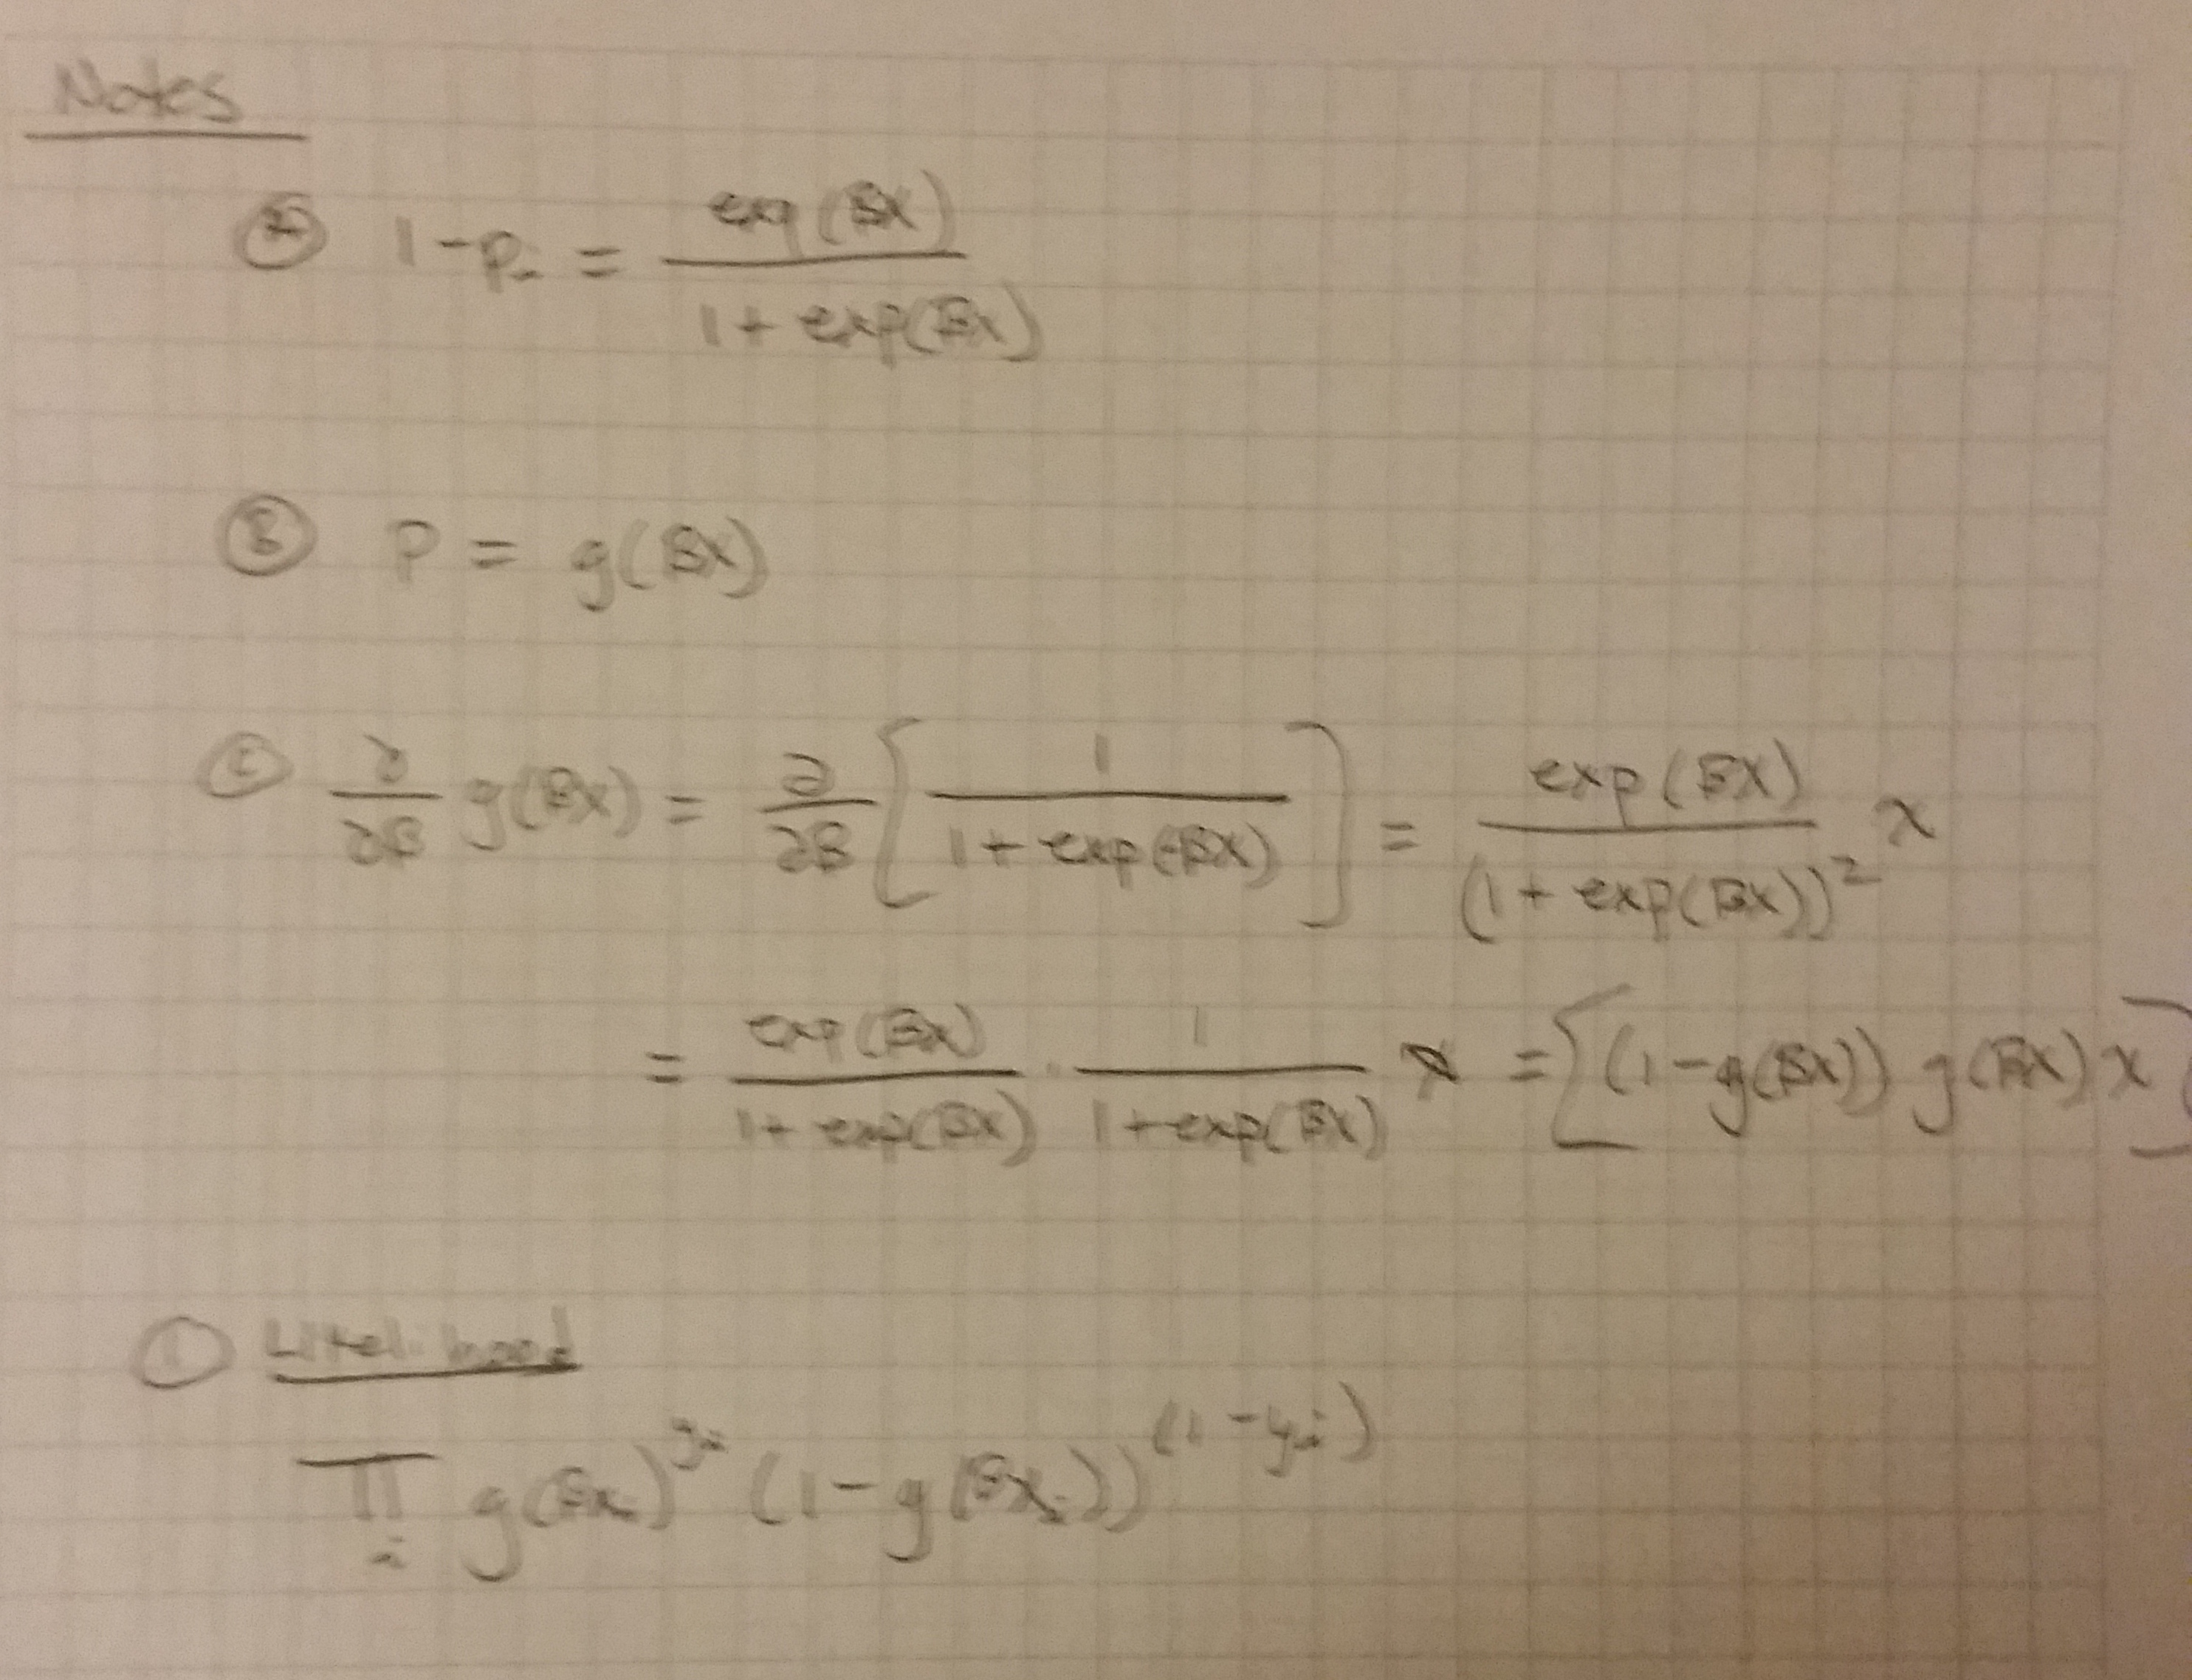 Notes
Ⓐ 1-pᵢ = exp(βx) / (1 + exp(βx))
Ⓑ P = g(βx)
Ⓒ ∂/∂β g(βx) = ∂/∂β [ 1 / (1 + exp(-βx)) ] = exp(βx) / (1 + exp(βx))² x
= exp(βx) / (1 + exp(βx)) · 1 / (1 + exp(βx)) x = [(1 - g(βx)) g(βx) x]
① Likelihood
∏ᵢ g(βxᵢ)^yᵢ (1 - g(βxᵢ))^(1 - yᵢ)